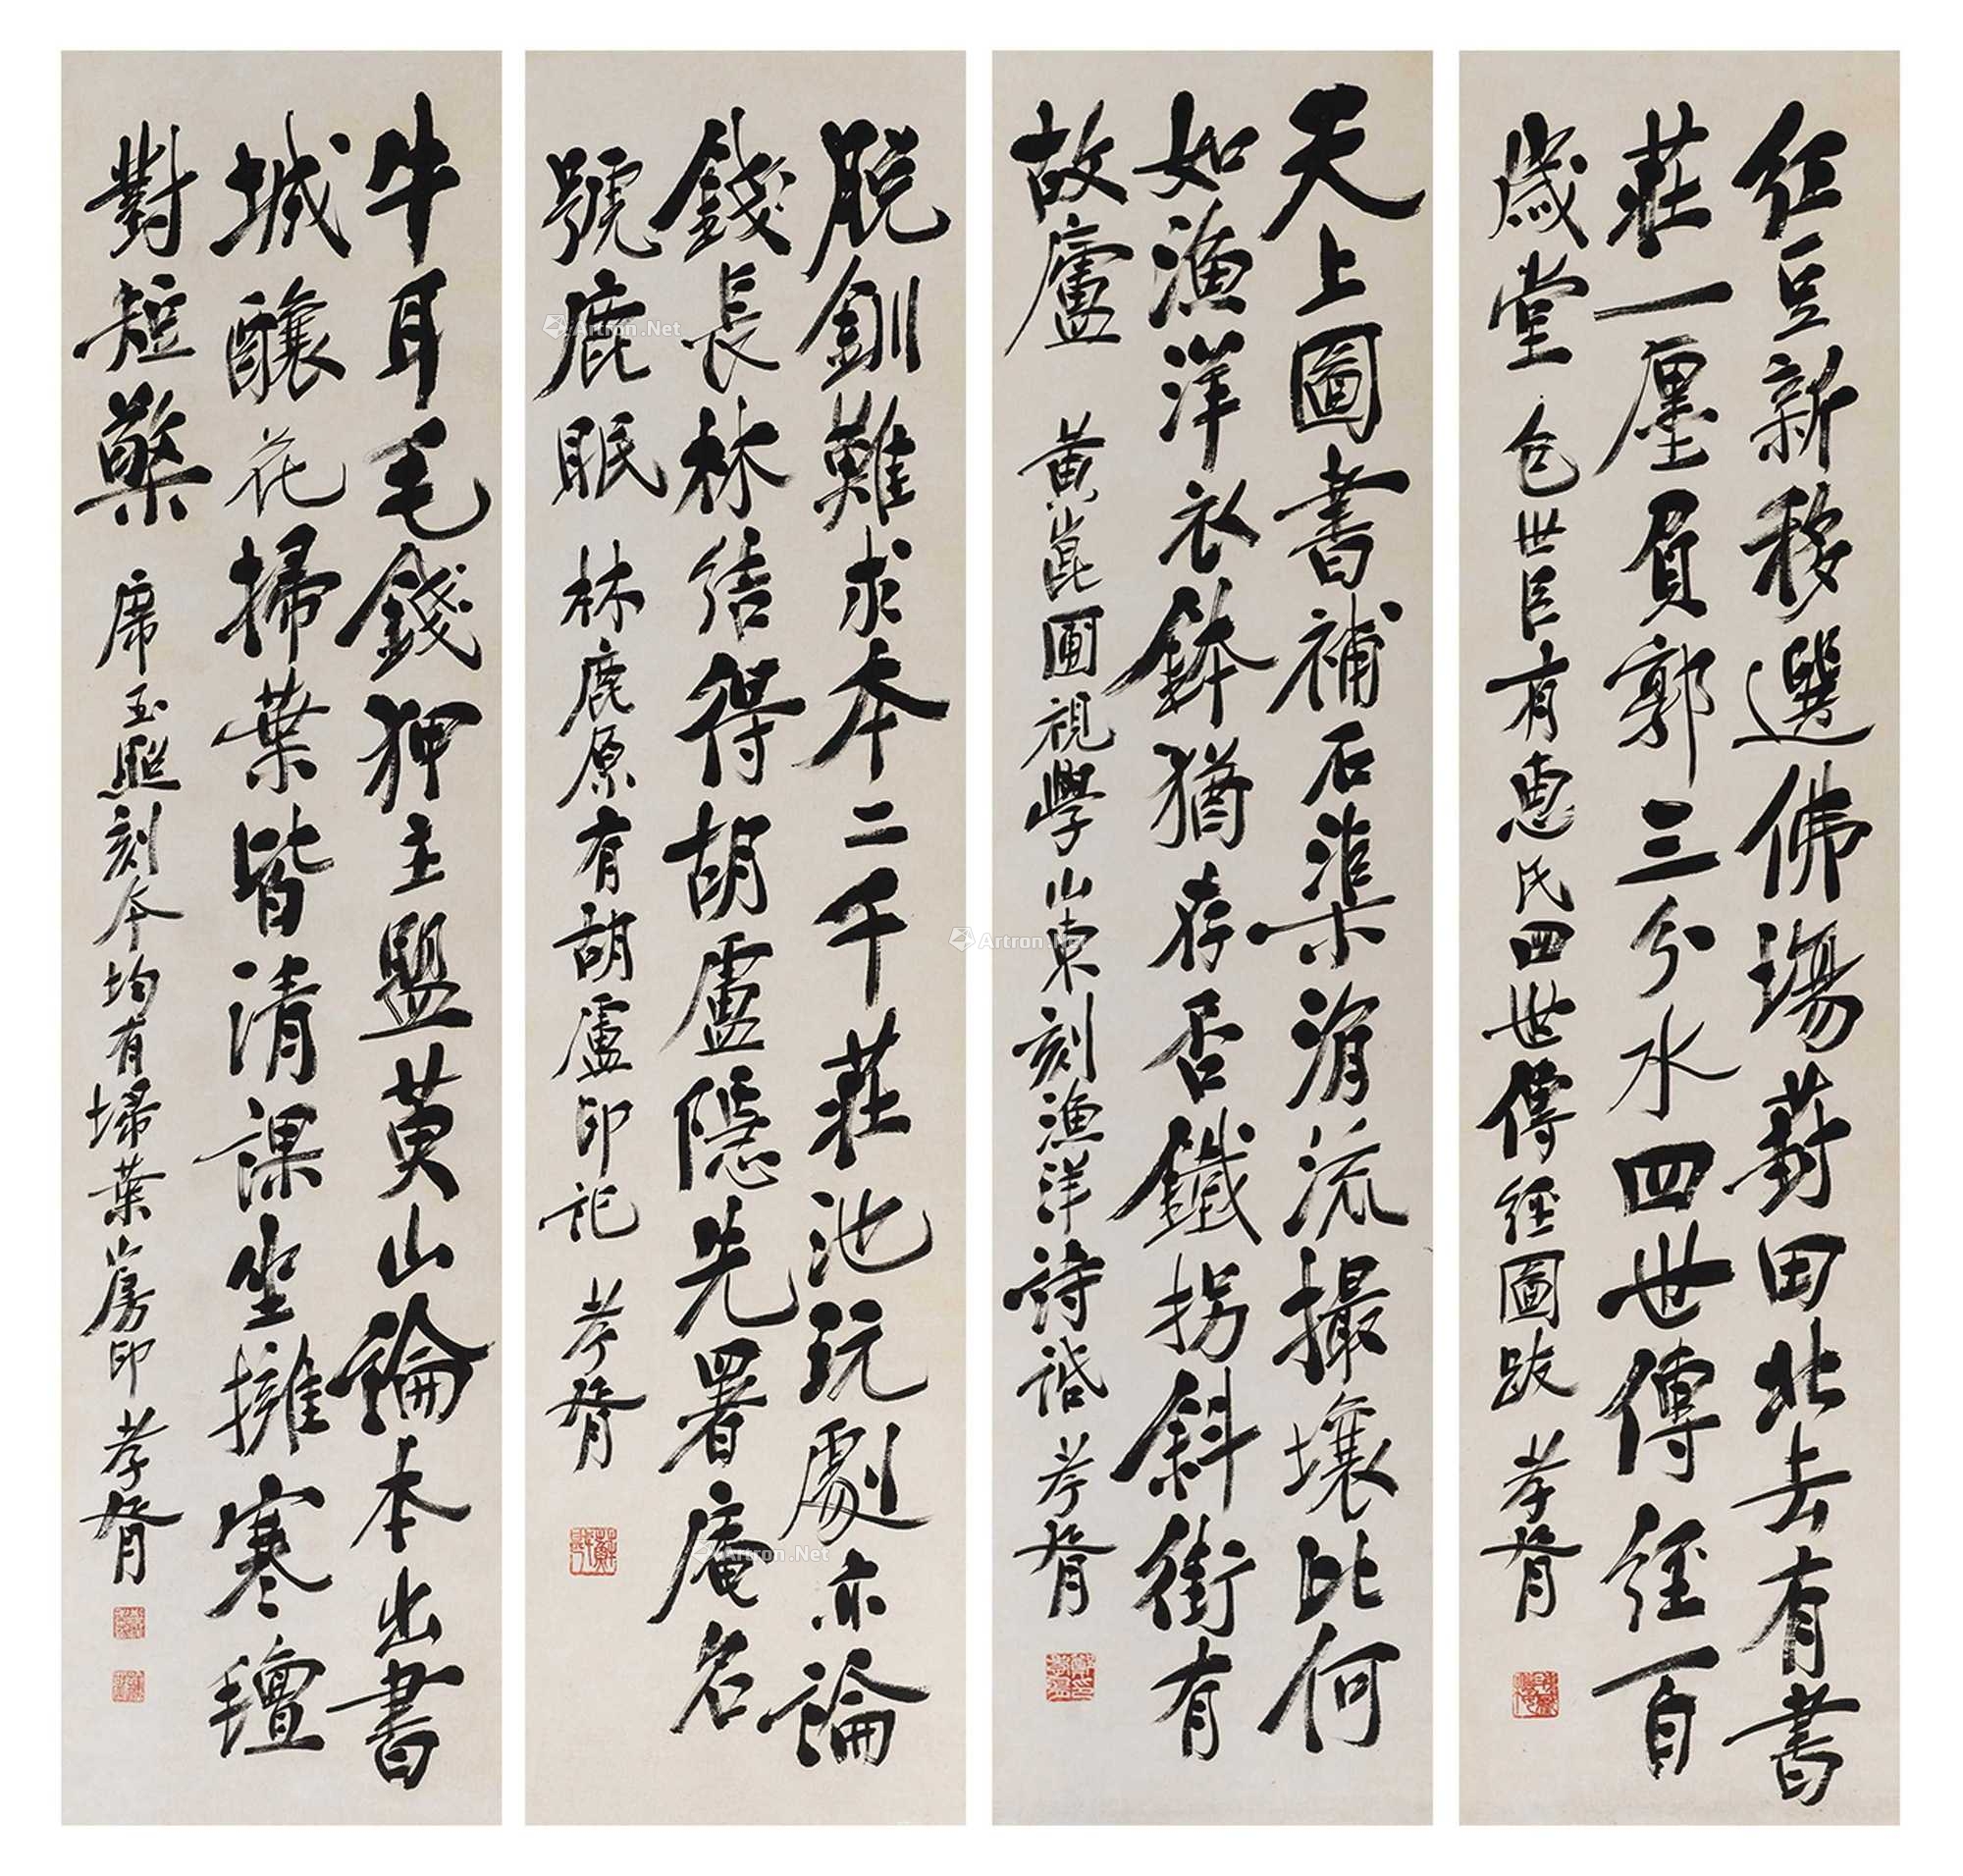 紅豆新移選佛場葑田北去有書
莊一廛負郭三分水四世傳經百
歲堂 包世臣有惠氏四世傳經圖跋 孝胥
天上圖書補石渠涓流撮壤比何
如漁洋衣鉢猶存否鐵拐斜街有
故廬 黃崑圃視學山東刻漁洋詩話 孝胥
脫釧難求本二千莊池玩劇亦論
錢長林結得胡盧隱先署庵名
號鹿眠 林鹿原有胡盧印記 孝胥
牛耳毛錢狎主盟黃山論本出書
城釀花掃葉皆清課坐擁寒氈
對短檠 席玉照刻本均有掃葉山房印 孝胥
Artron.Net
Artron.Net
Artron.Net